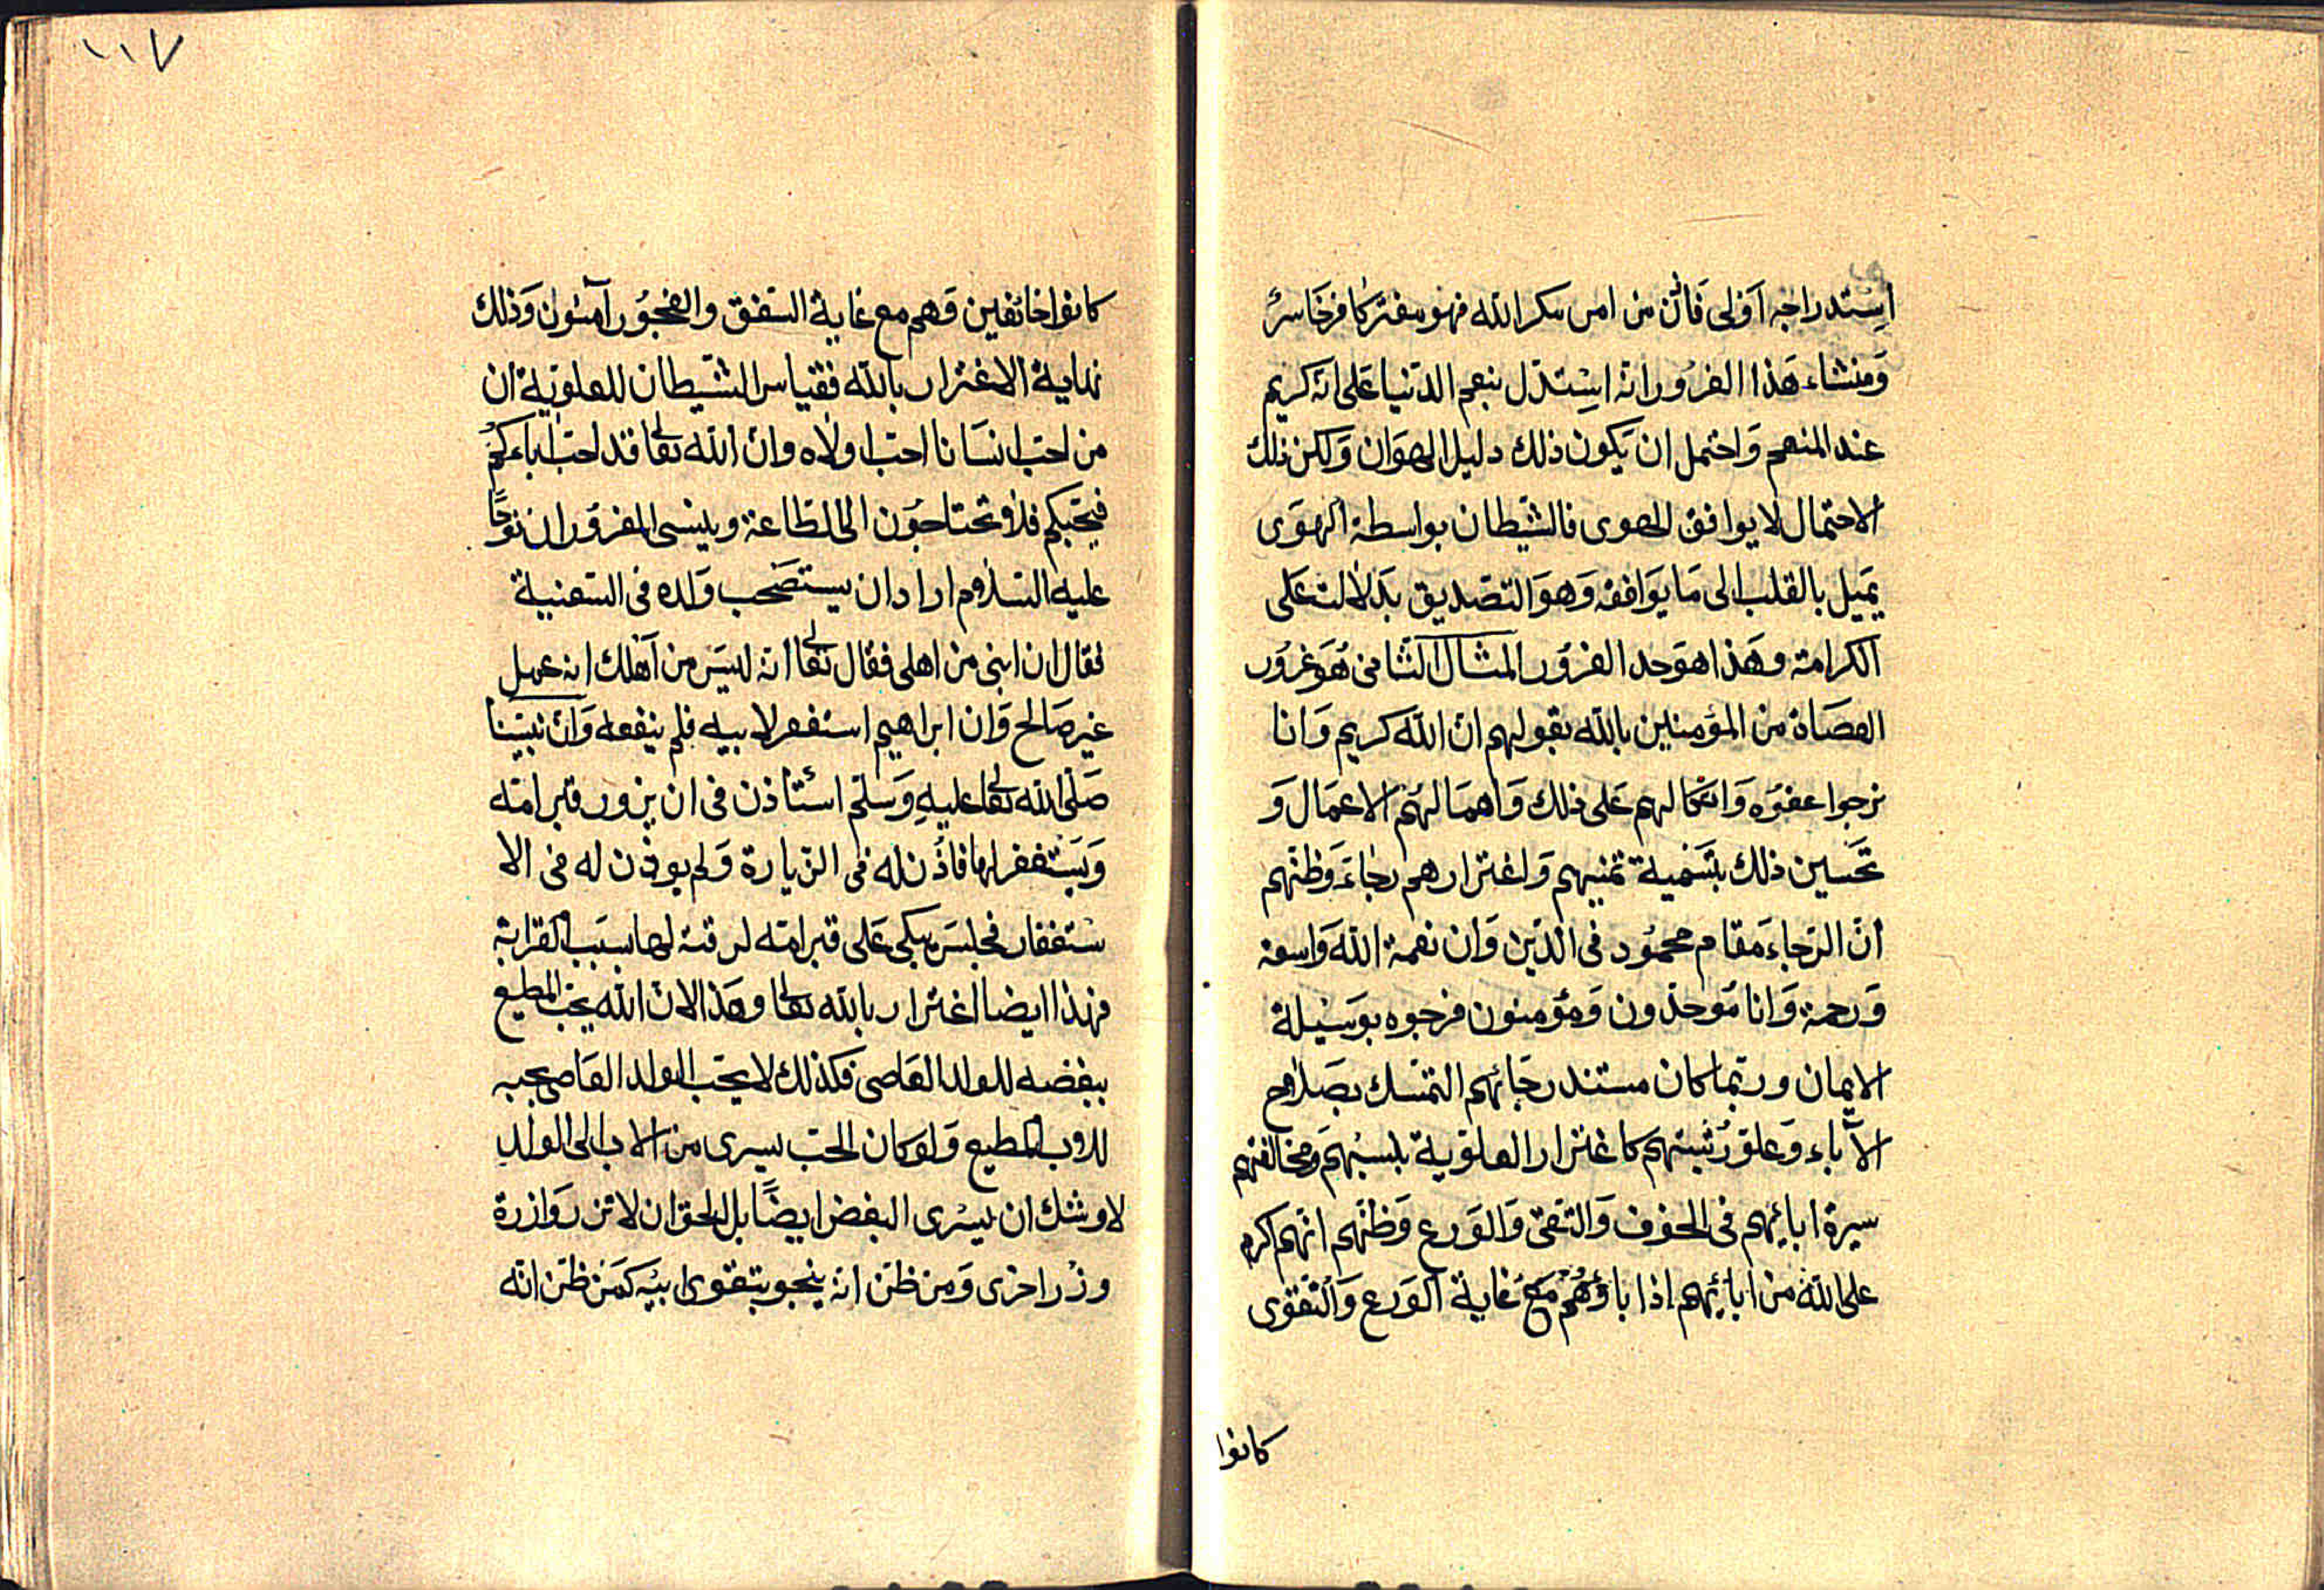 استدراجه اولى فان من امن مكر الله فهو مغتر كافر خاسر
ومنشاء هذا الغرور انه استدل بنعم الدنيا على انه كريم
عند المنعم واحتمل ان يكون ذلك دليل الهوان ولكن ذلك
الاحتمال لا يوافق الهوى فالشيطان بواسطة الهوى
يميل بالقلب الى ما يوافقه وهو التصديق بدلالته على
الكرامة وهذا هو حد الغرور المثال الثانى هو غرور
العصاة من المؤمنين بالله بقولهم ان الله كريم وانا
نرجوا عفوه واتكالهم على ذلك واهمالهم الاعمال و
تحسين ذلك بتسمية تمنيهم واغترارهم رجاء وظنهم
ان الرجاء مقام محمود فى الدين وان نعمة الله واسعة
ورحمة وانا موحدون ومؤمنون فرجوه بوسيلة
الايمان وربما كان مستند رجائهم التمسك بصلاح
الآباء وعلو رتبتهم كاغترار العلوية بنسبهم ومخالفتهم
سيرة ابائهم فى الخوف والتقى والورع وظنهم انهم اكرم
على الله من ابائهم اذا باؤهم مع غاية الورع والتقوى
كانوا
١١٧
كانوا خائفين وهم مع غاية الفسق والفجور آمنون وذلك
نهاية الاغترار بالله فقياس الشيطان للعلوية ان
من احب انسانا احب اولاه وان الله تعالى قد احب اباءكم
فيحبكم فلا تحتاجون الى الطاعة وينسى المغرور ان نوحًا
عليه السلام اراد ان يستصحب ولده فى السفينة
فقال ان ابنى من اهلى فقال تعالى انه ليس من اهلك انه عمل
غير صالح وان ابراهيم استغفر لابيه فلم ينفعه وان نبينا
صلى الله تعالى عليه وسلم استأذن فى ان يزور قبر امه
ويستغفر لها فاذن له فى الزيارة ولم يوذن له فى الا
ستغفار فجلس يبكى على قبر امه لرقته لها بسبب القرابة
فهذا ايضا اغترار بالله تعالى وهذا لان الله يحب المطيع
ببغضه للولد العاصى فكذلك لا يحب الولد العاصى بحبه
للاب المطيع ولو كان الحب يسرى من الاب الى الولد
لاوشك ان يسرى البغض ايضًا بل الحق ان لا تزر وازرة
وزر اخرى ومن ظن انه ينجو بتقوى ابيه كمن ظن انه